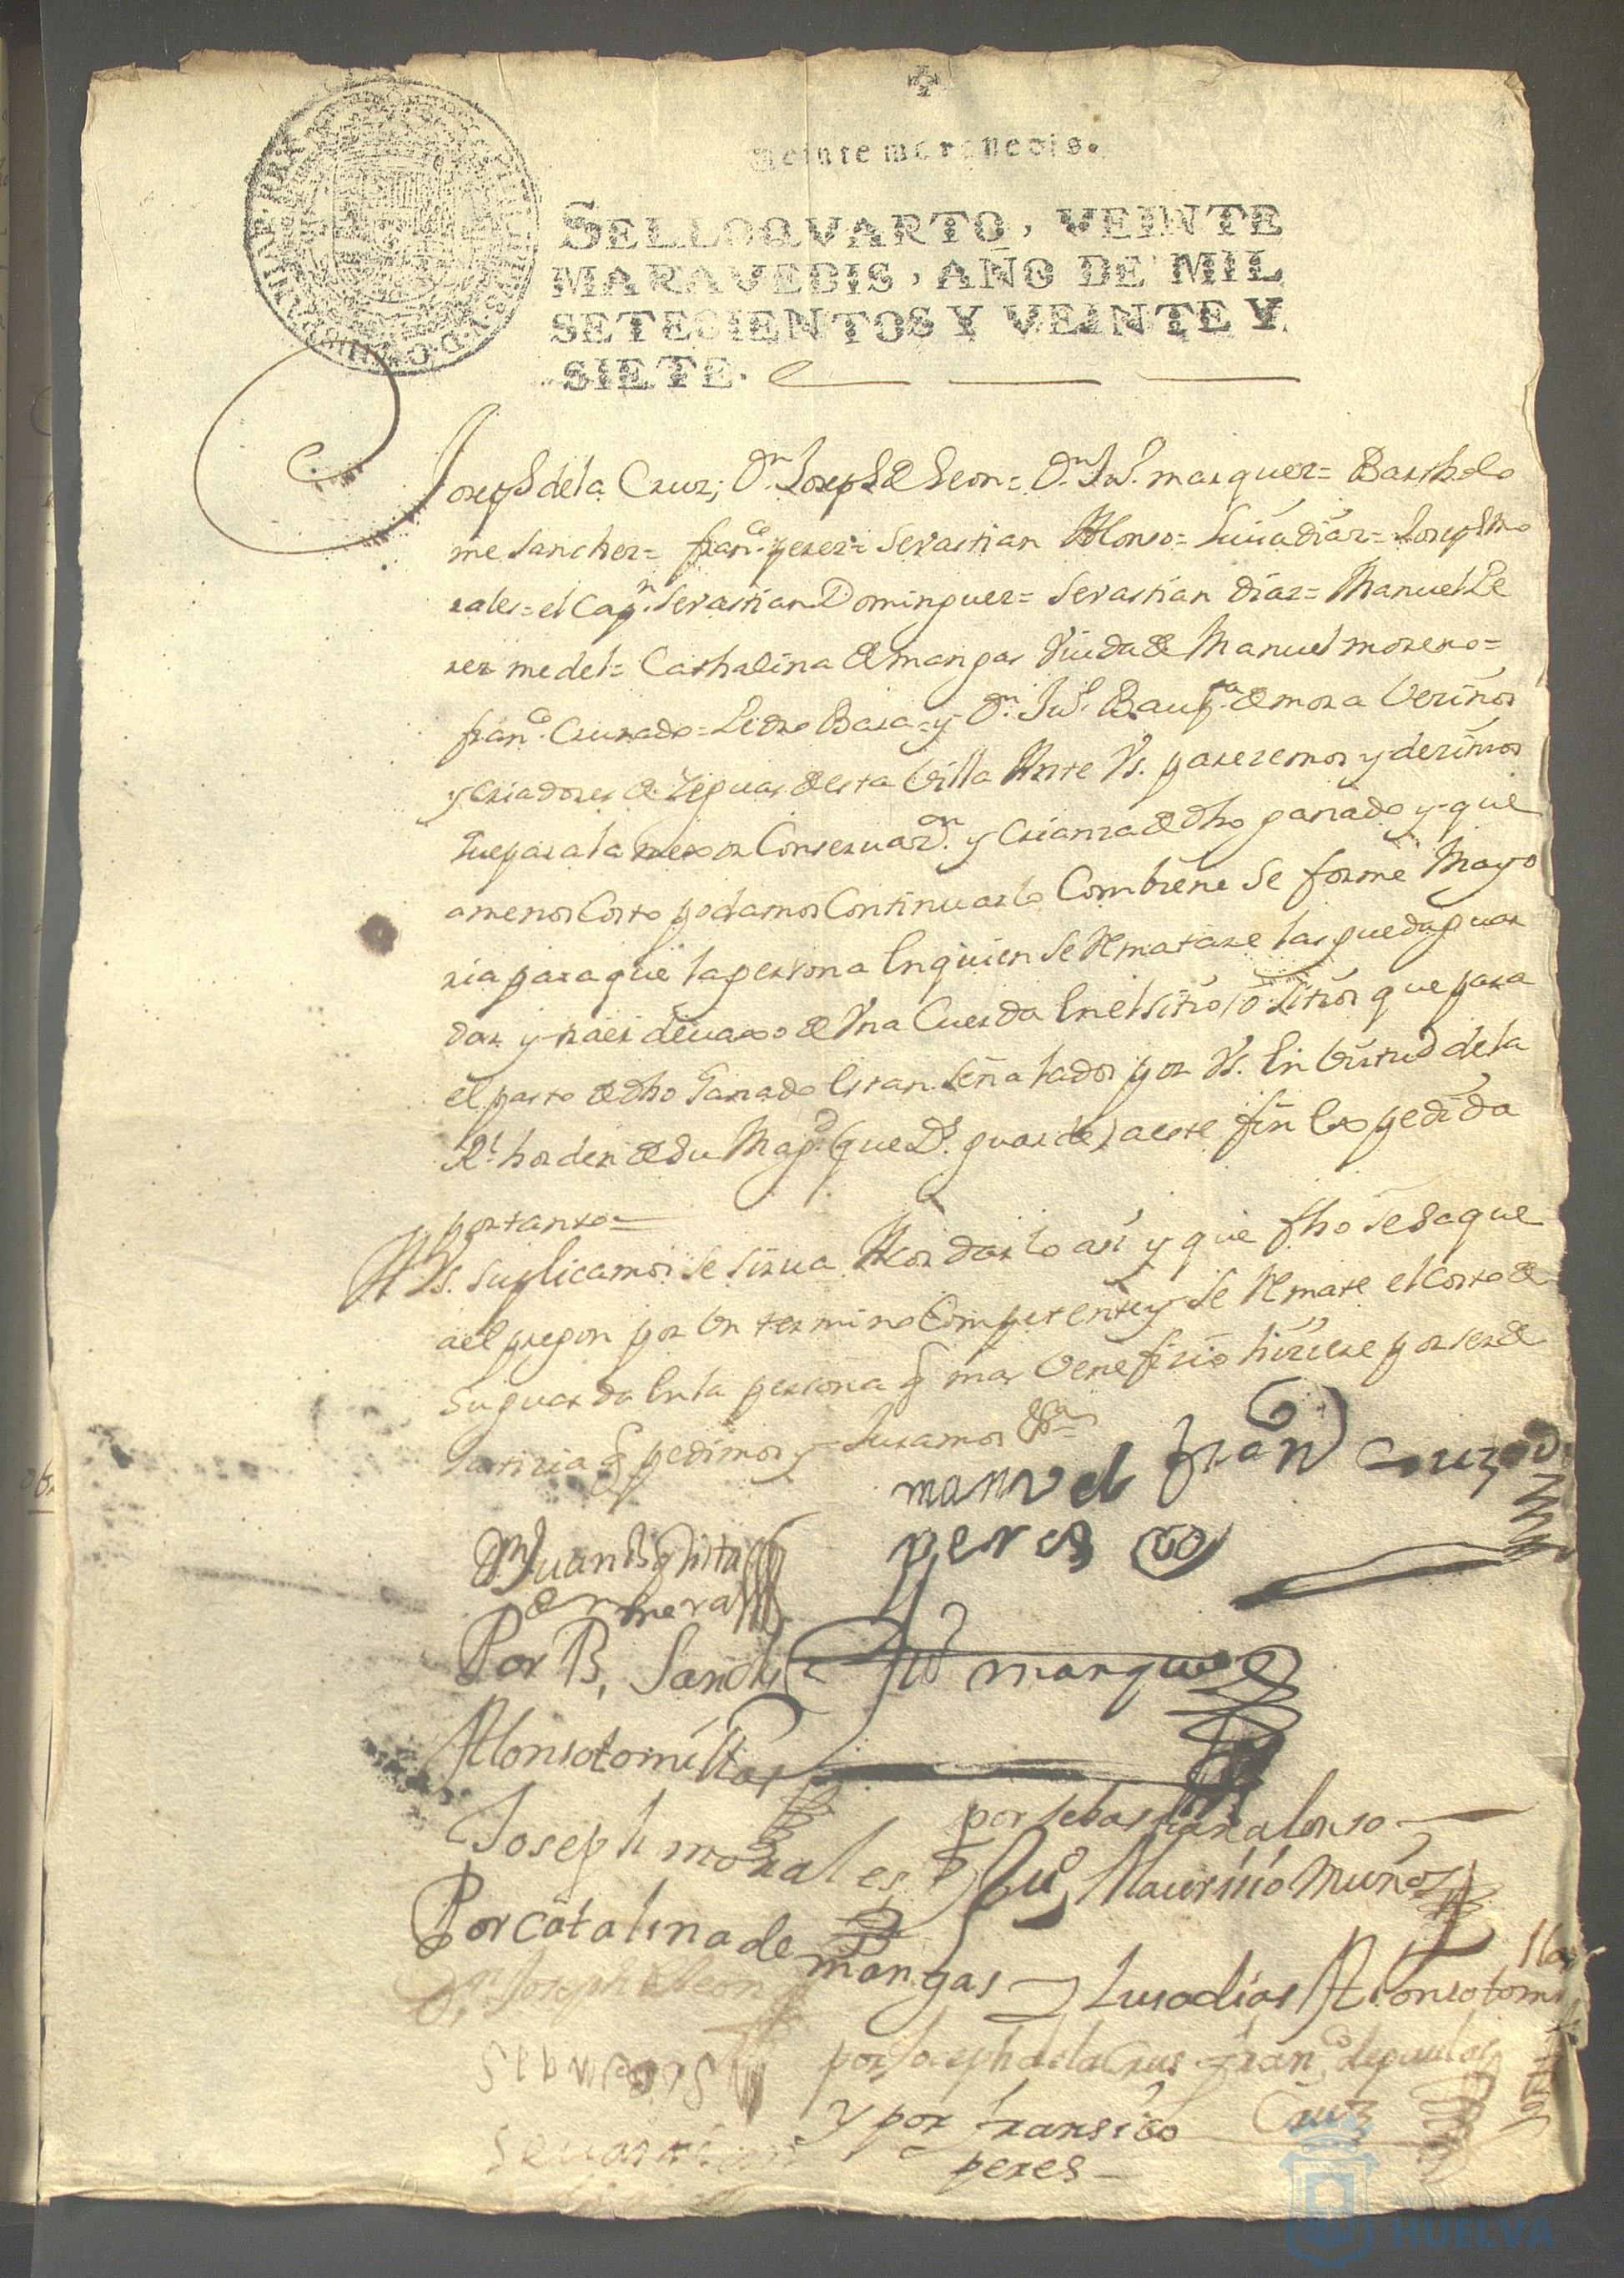 Veinte maravedis.
SELLO QVARTO, VEINTE
MARAVEDIS, AÑO DE MIL
SETECIENTOS Y VEINTE Y
SIETE.
Joseph de la Cruz; Dn. Joseph de Leon= Dn. Juo. marquez= Bartholo
me sanchez= franco. perez= Sevastian Alonso= Luis diaz= Joseph Mo
rales= el Capn. Sevastian Dominguez= Sevastian diaz= Manuel Pe
rez medel= Cathalina de mangas viuda de Manuel moreno=
franco. Cruzado= Pedro Baza= y Dn. Juo. Baupta. de mora Vezinos
y Criadores de Yeguas desta Villa Ante Vs. parezemos y dezimos
que para la mexor Conservazon. y Crianza de dho ganado y que
a menos Costo podamos Continuarlo Combiene se forme Mayo
ria para que la persona en quien se Rematare las pueda guar
dar y traer devaxo de Una Cuerda en el sitio, o sitios que para
el pasto de dho Ganado estan señalados por Vs. en virtud de la
Rl. horden de su Magd. (que Ds. guarde) a este fin expedida
por tanto=
A Vs. suplicamos se sirva Acordarlo asi y que fho se saque
a el pregon por Un termino Competente y se Remate el Costo de
su guarda en la persona q mas venefizio hiziere por ser de
Justizia q pedimos y Juramos &a
manuel franco Cruzado
perez
Dn Juan Baphista
de mora
Por B. Sanches Juo marquez
Alonso tomillas
por sebastian alonso
Joseph morales Juo Maurisio Muños
Por catalina de mangas Luis dias Alonso tomillas
Dn. Joseph de Leon
por Joseph de la Crus Franco de paula
y por fransisco Cruz
peres
Sevastian
HUELVA